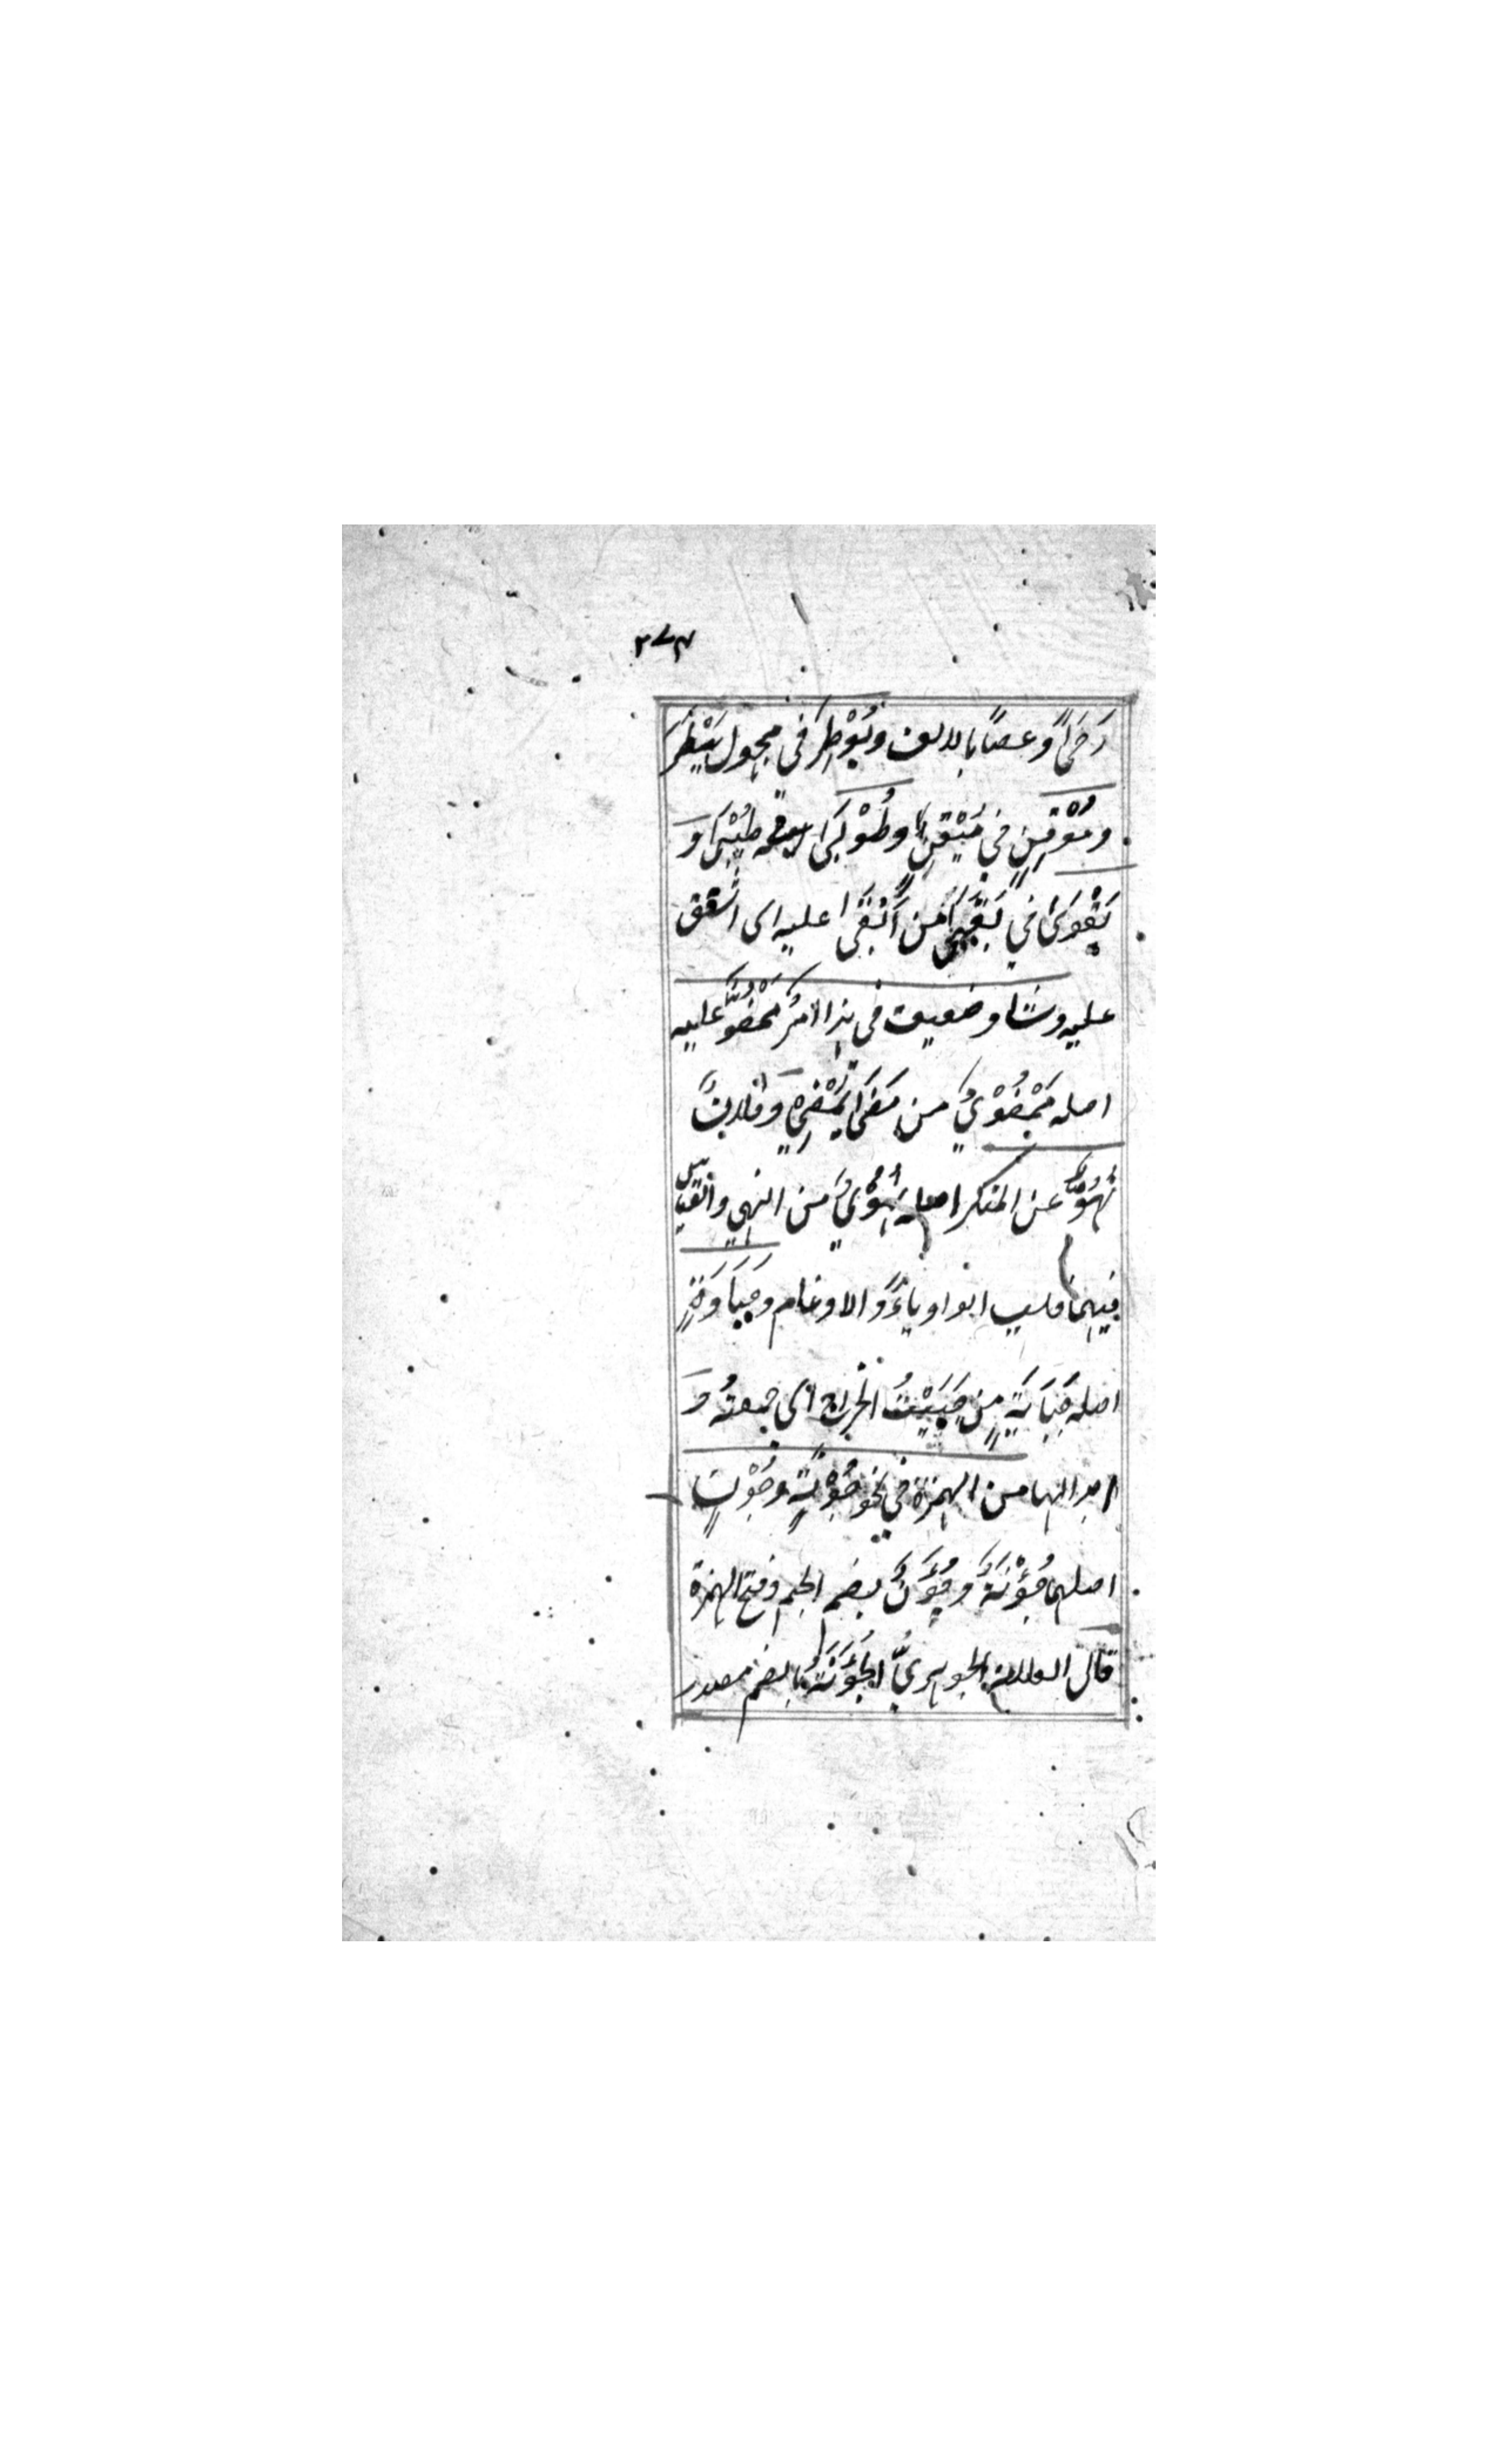 ٢٧٣
رَحًىً وَعصًا بالالف وبُوْطِرَ في مجهول بَيْطَرَ
ومُوْقِنٍ في مُيْقِنٍ وطُوْبَى في طُيْبَى وَ
بَقْوَى في بَقْيَى من أَبْقَى عليه اى اشفق
عليه وشذا وضعيف في هذا الامرُ مَمْضُوٌّ عليه
اصله مَمْضُوْيٌ من مَضَى يَمْضِيْ وفلانٌ
نَهُوٌّ عن المنكر اصله نَهُوْيٌ من النهي والقياس
فيهما قلب الواو ياءً والادغام وجِبَاوَةٍ
اصله جِبَايَةٍ مِن جَبَيْتُ الخراج اى جمعتُه وَ
ابدالها من الهمزة في نحو جُوْنَةٍ وجُوْنٍ
اصلهما جُؤْنَةٌ وجُؤَنٌ بضم الجيم وفتح الهمزة
قال العلامة الجوهريُّ الجُؤْنَةُ بالضم مصدر